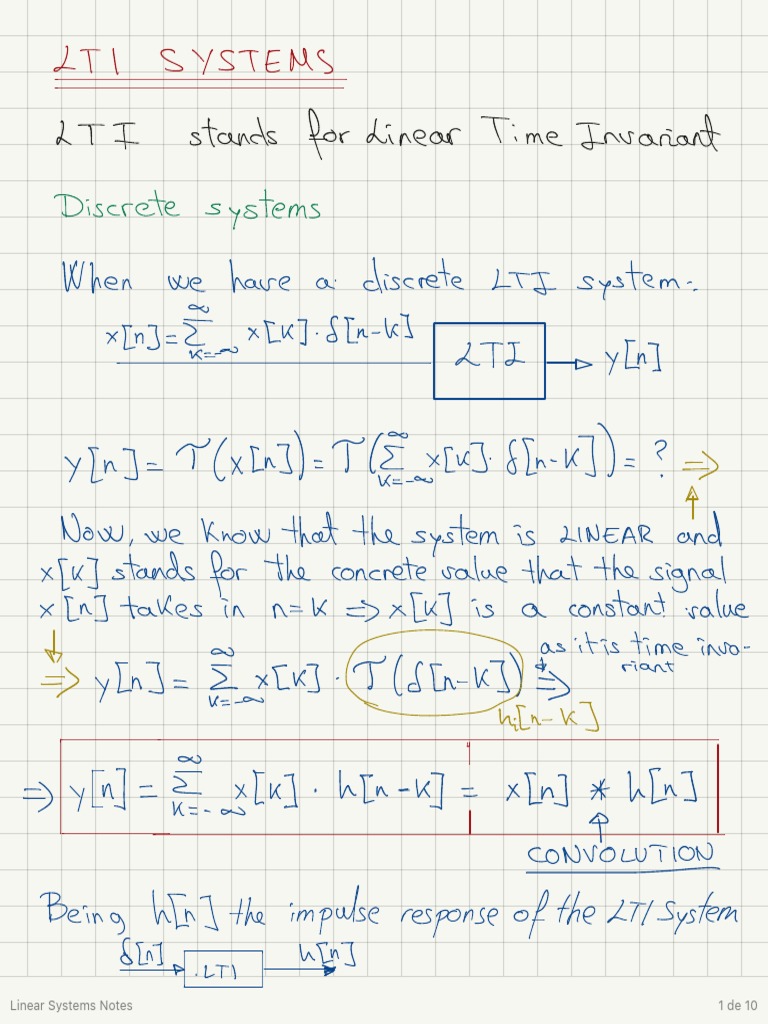 LTI SYSTEMS
LTI stands for Linear Time Invariant
Discrete systems
When we have a discrete LTI system:
x[n]=∑_{k=-∞}^{∞} x[k]·δ[n-k]
LTI
y[n]
y[n] = T(x[n]) = T(∑_{k=-∞}^{∞} x[k]·δ[n-k]) = ? ⇒
Now, we know that the system is LINEAR and
x[k] stands for the concrete value that the signal
x[n] takes in n=k ⇒ x[k] is a constant value
as it is time inva-
riant
⇒ y[n] = ∑_{k=-∞}^{∞} x[k] · T(δ[n-k]) ⇒
h[n-k]
⇒ y[n] = ∑_{k=-∞}^{∞} x[k] · h[n-k] = x[n] * h[n]
CONVOLUTION
Being h[n] the impulse response of the LTI System
δ[n]
LTI
h[n]
Linear Systems Notes
1 de 10